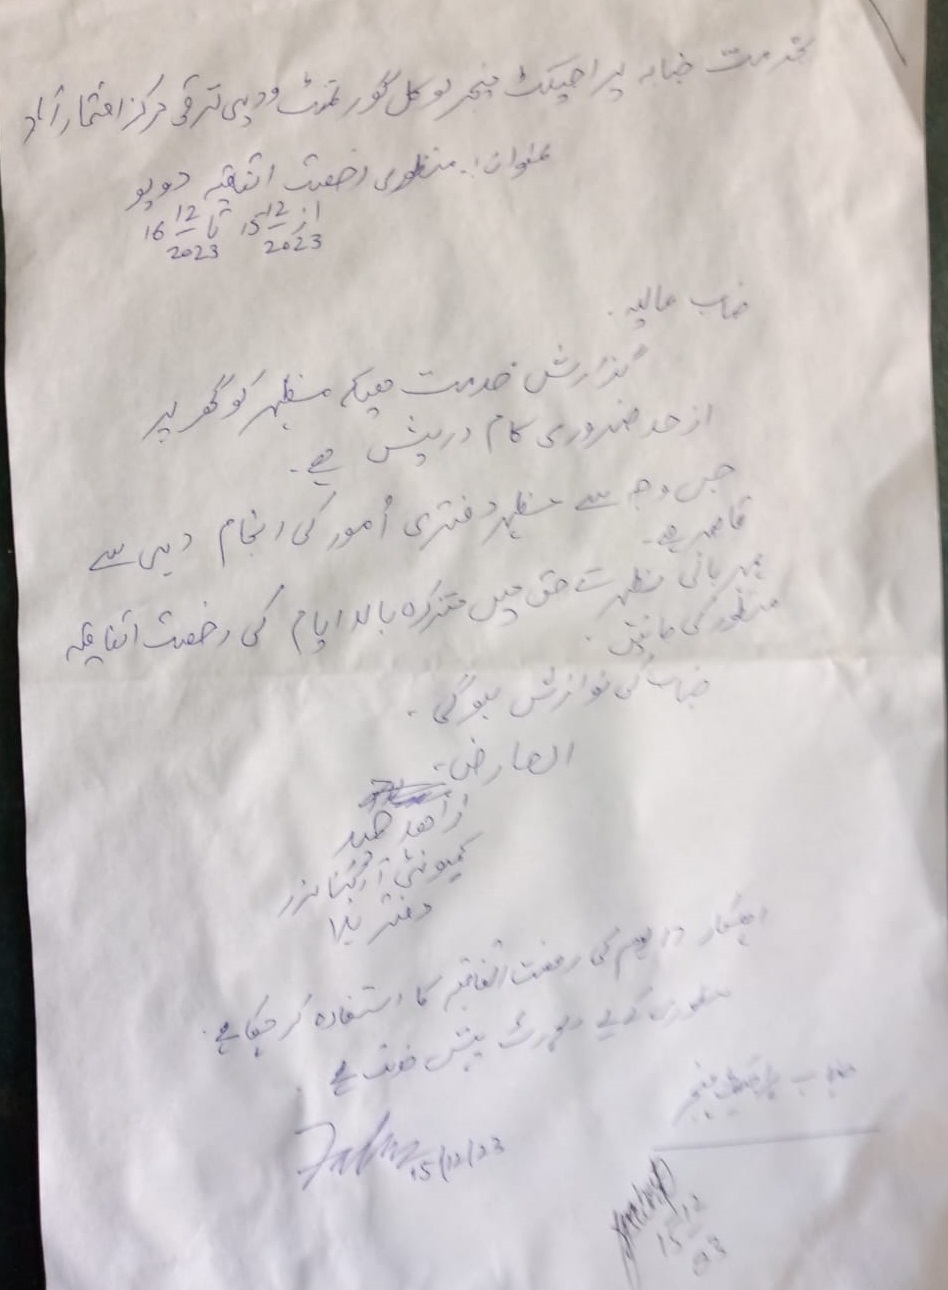 بخدمت جناب پراجیکٹ منیجر لوکل گورنمنٹ و دیہی ترقی مرکز افتخار آباد
عنوان:۔ منظوری رخصت اتفاقیہ دو یوم
از 15-12-2023 تا 16-12-2023
جناب عالیہ۔
گذارش خدمت ہیکہ مظہر کو گھر پر
از حد ضروری کام درپیش ہے۔
جس وجہ سے مظہر دفتری اُمور کی انجام دہی سے
قاصر ہے۔
مہربانی مظہر کے حق میں متذکرہ بالا ایام کی رخصت اتفاقیہ
منظور کی جائیں۔
جناب کی نوازش ہو گی۔
العارض:۔
زاهد
کمیونٹی آرگنائزر
دفتر ہذا
اہلکار یوم کی رخصت اتفاقیہ کا استفادہ کر چکا ہے۔
منظوری کیلئے رپورٹ پیش خدمت ہے۔
جناب پراجیکٹ منیجر
15/12/23
15-12-23